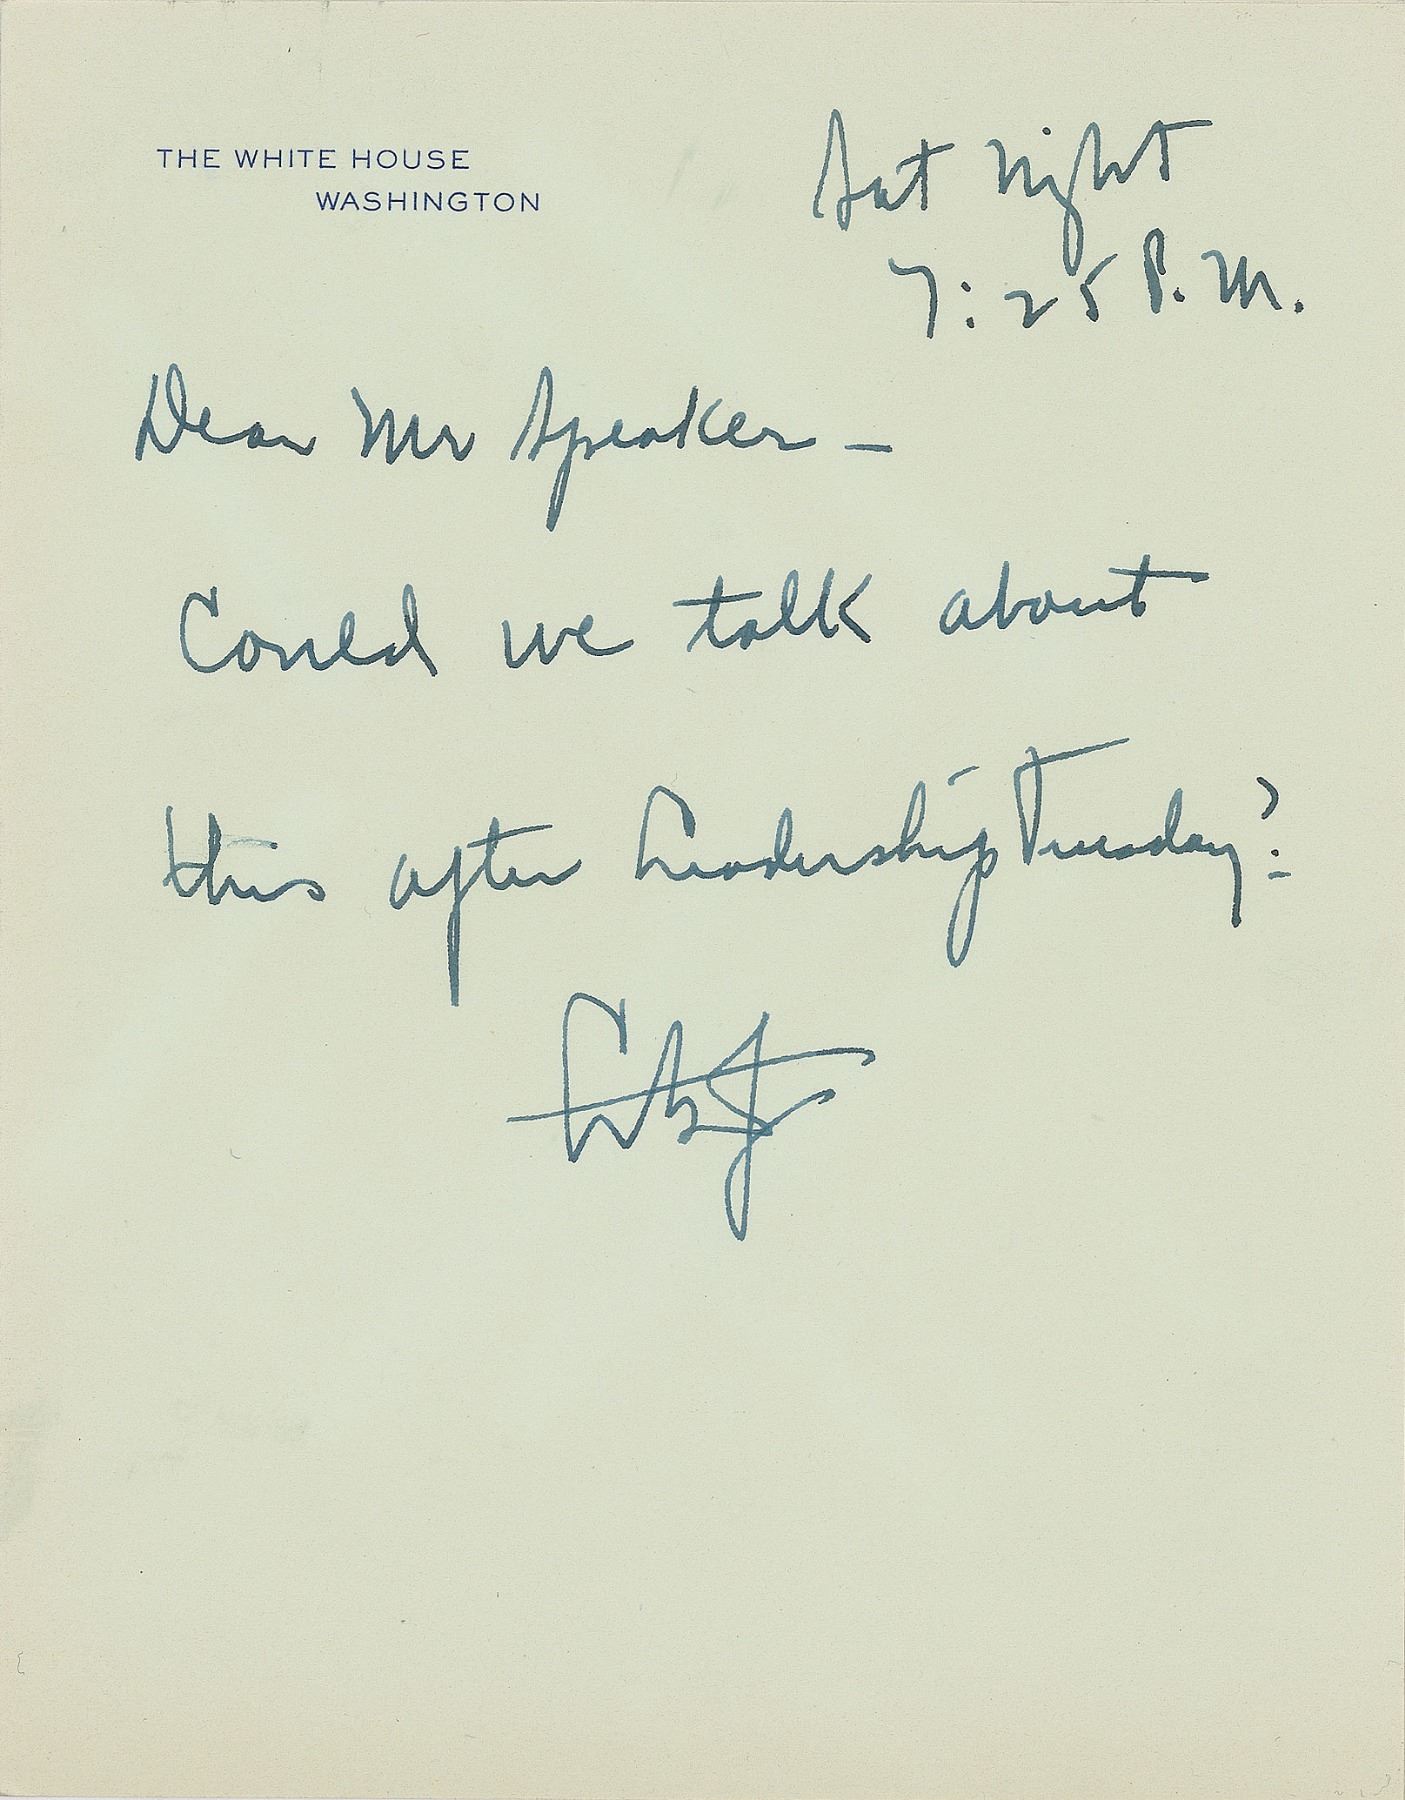 THE WHITE HOUSE
WASHINGTON
Sat night
7:25 P.M.
Dear Mr Speaker –
Could we talk about
this after Leadership Tuesday?
LBJ